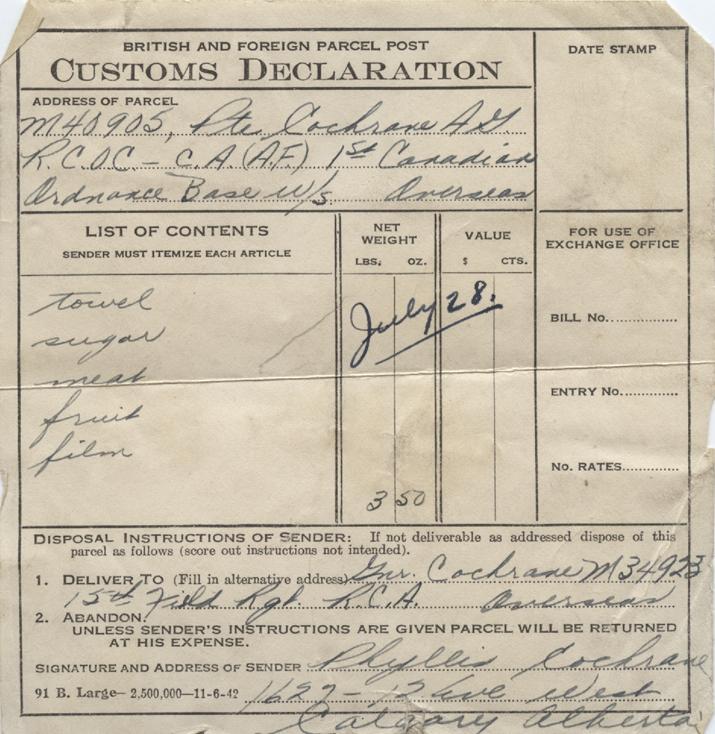 BRITISH AND FOREIGN PARCEL POST
CUSTOMS DECLARATION
DATE STAMP
ADDRESS OF PARCEL
M40905, Pte. Cochrane A.G.
R.C.O.C. – C.A.(A.F.) 1st Canadian
Ordnance Base w/s Overseas
LIST OF CONTENTS
SENDER MUST ITEMIZE EACH ARTICLE
NET WEIGHT
LBS. OZ.
VALUE
$ CTS.
FOR USE OF EXCHANGE OFFICE
towel
sugar
meat
fruit
film
July 28.
3 50
BILL No.
ENTRY No.
No. RATES
DISPOSAL INSTRUCTIONS OF SENDER: If not deliverable as addressed dispose of this
parcel as follows (score out instructions not intended).
1. DELIVER TO (Fill in alternative address) Gnr. Cochrane M34923
15th Field Rgt. R.C.A. Overseas
2. ABANDON.
UNLESS SENDER'S INSTRUCTIONS ARE GIVEN PARCEL WILL BE RETURNED
AT HIS EXPENSE.
SIGNATURE AND ADDRESS OF SENDER Phyllis Cochrane
91 B. Large—2,500,000—11-6-42 1627 – 12 Ave West
Calgary Alberta